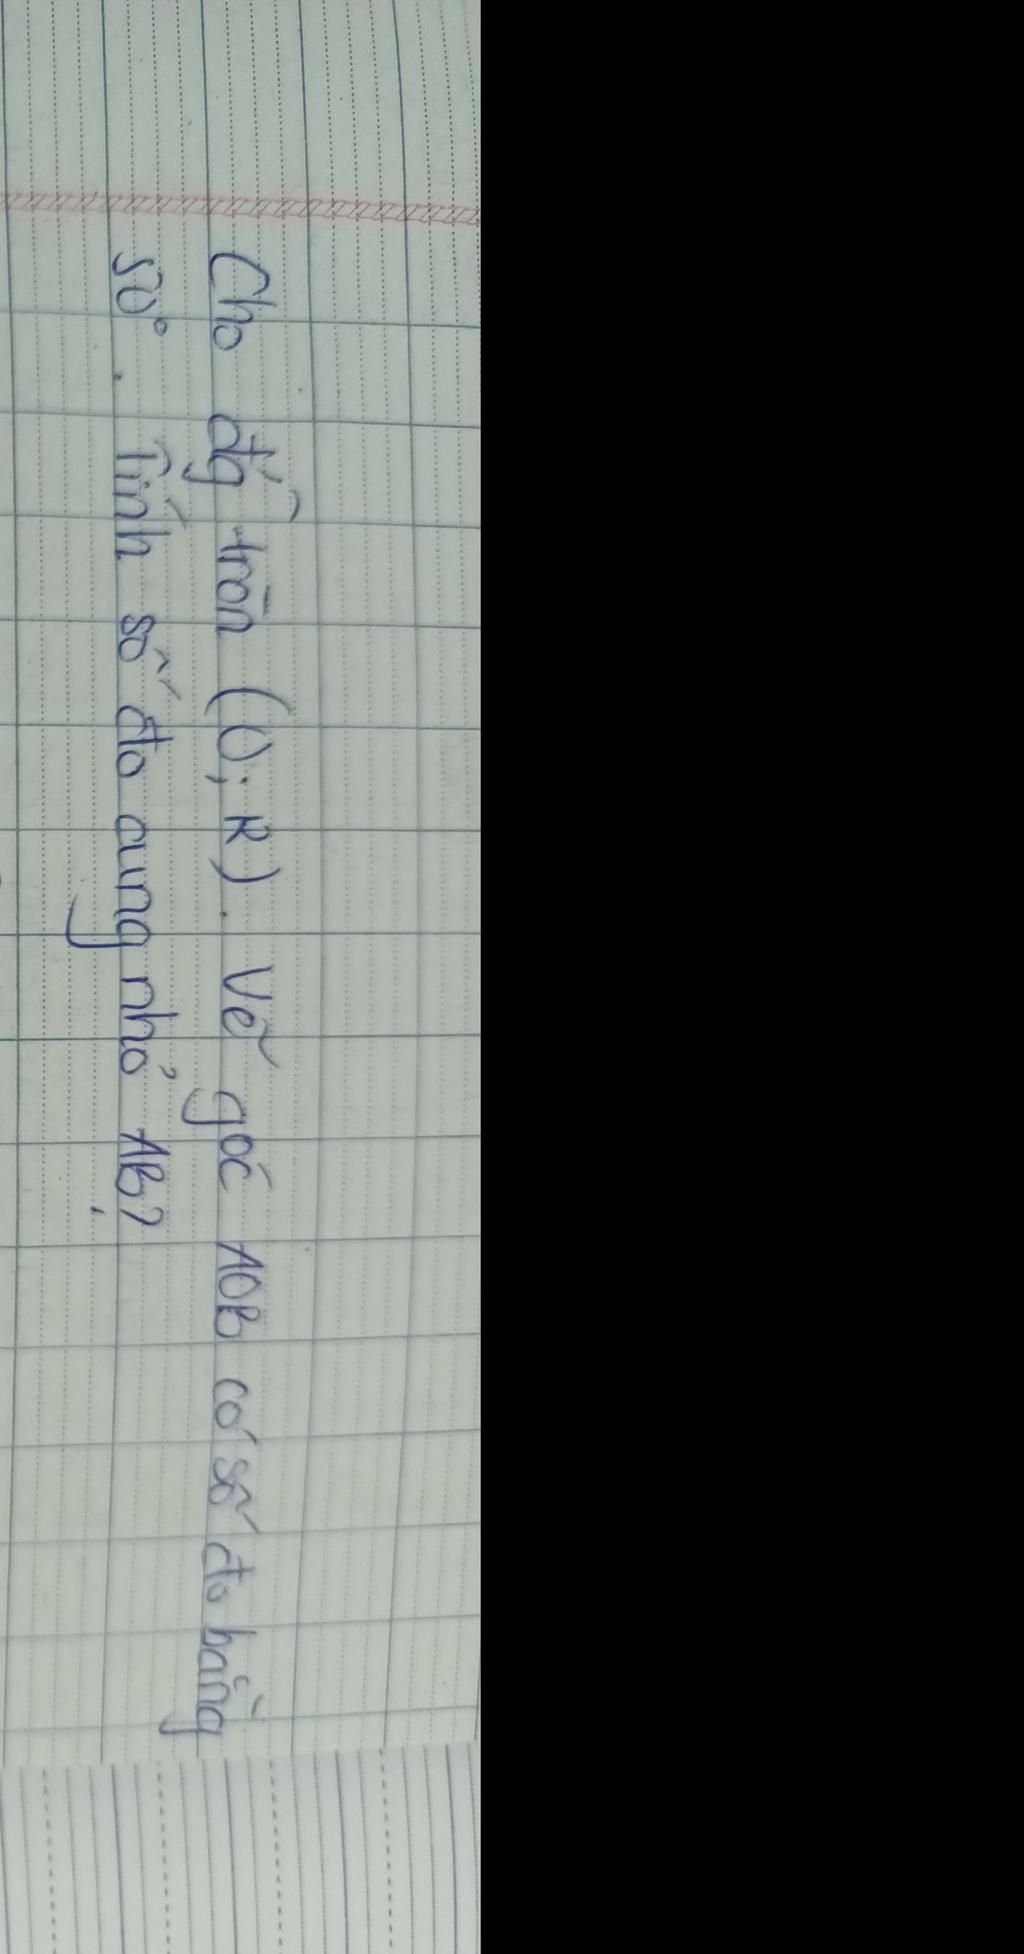 Cho đg tròn (O; R). Vẽ góc AOB có số đo bằng
50°. Tính số đo cung nhỏ AB?